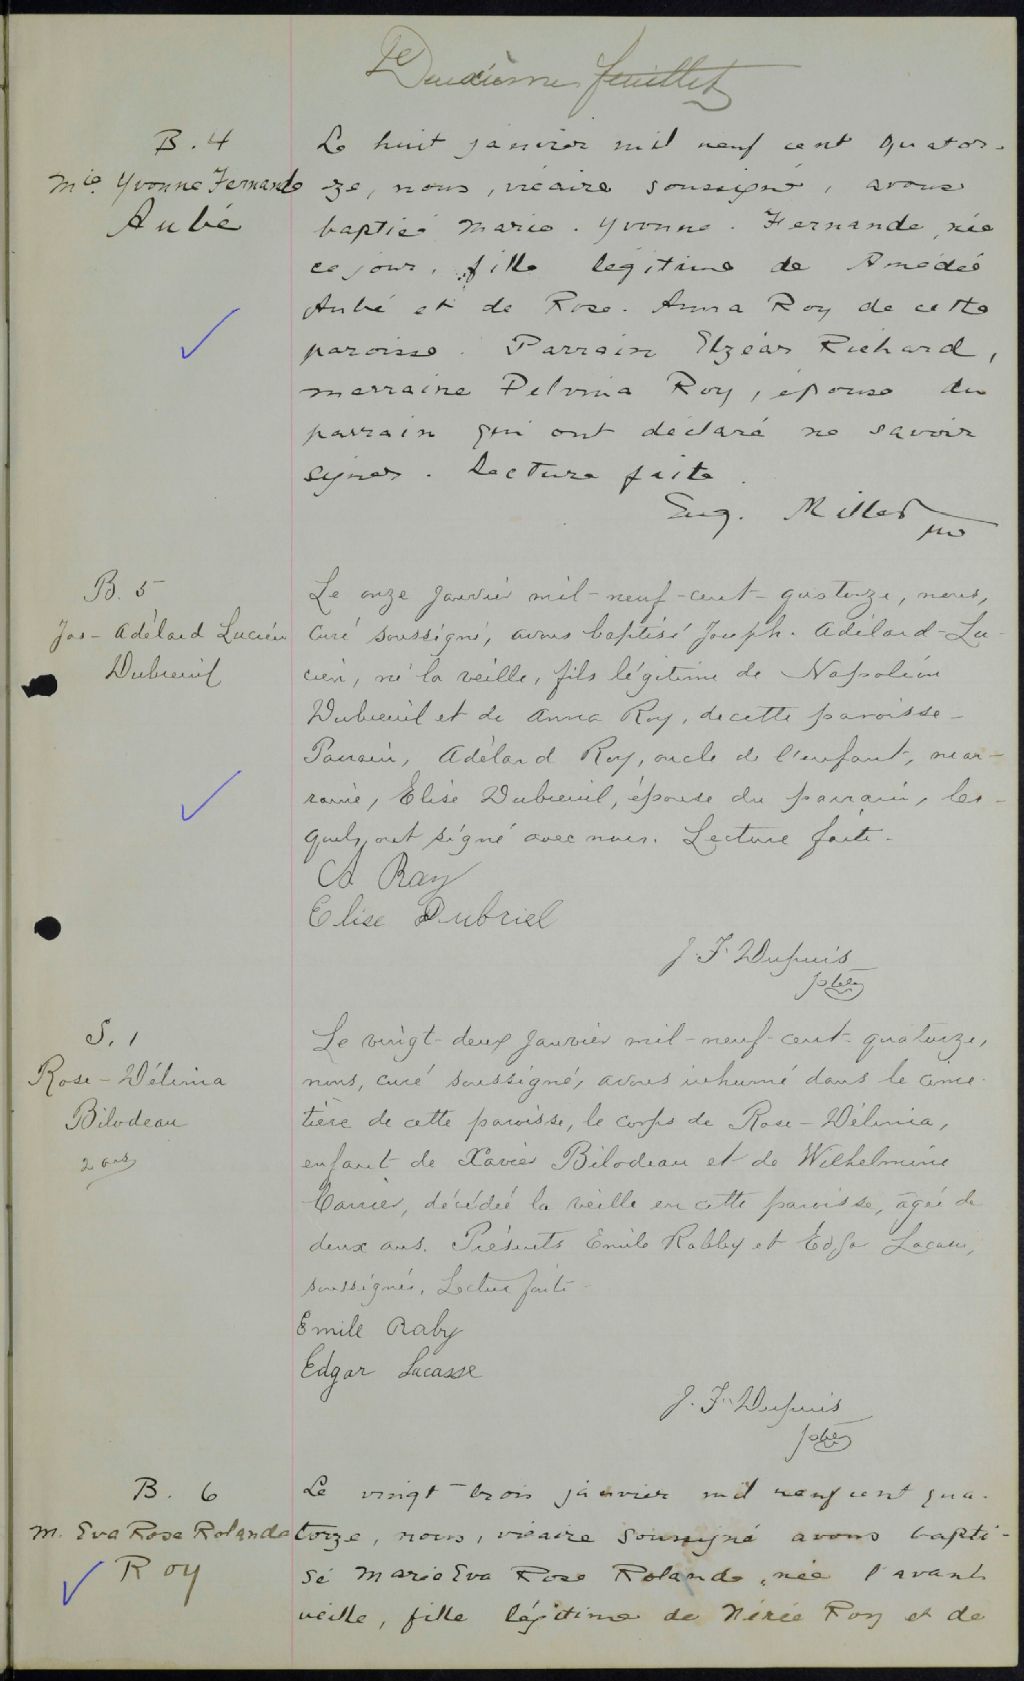 Deuxième feuillet
B. 4
Mie Yvonne Fernande
Aubé
Le huit janvier mil neuf cent quator-
ze, nous, vicaire soussigné, avons
baptisé Marie. Yvonne. Fernande, née
ce jour, fille légitime de Amédée
Aubé et de Rose. Anna Roy de cette
paroisse. Parrain Elzéar Richard,
marraine Delvina Roy, épouse du
parrain qui ont déclaré ne savoir
signer. Lecture faite.
Eug. Millet ptre
B. 5
Jos- Adélard Lucien
Dubreuil
Le onze janvier mil-neuf-cent-quatorze, nous,
curé soussigné, avons baptisé Joseph. Adélard-Lu-
cien, né la veille, fils légitime de Napoléon
Dubreuil et de Anna Roy, de cette paroisse-
Parrain, Adélard Roy, oncle de l'enfant, mar-
raine, Elise Dubreuil, épouse du parrain, les-
quels ont signé avec nous. Lecture faite-
A Roy
Elise Dubriel
J. F. Dupuis
ptre
S. 1
Rose-Délima
Bilodeau
2 ans
Le vingt-deux janvier mil-neuf-cent-quatorze,
nous, curé soussigné, avons inhumé dans le cime-
tière de cette paroisse, le corps de Rose-Délima,
enfant de Xavier Bilodeau et de Wilhelmine
Carrier, décédée la veille en cette paroisse, âgée de
deux ans. Présents Emile Rabby et Edgar Lacasse,
soussignés. Lecture faite-
Emile Raby
Edgar Lacasse
J. F. Dupuis
ptre
B. 6
M. Eva Rose Rolande
Roy
Le vingt-trois janvier mil neuf cent qua-
torze, nous, vicaire soussigné avons bapti-
sé Marie Eva Rose Rolande, née l'avant
veille, fille légitime de Nérée Roy et de